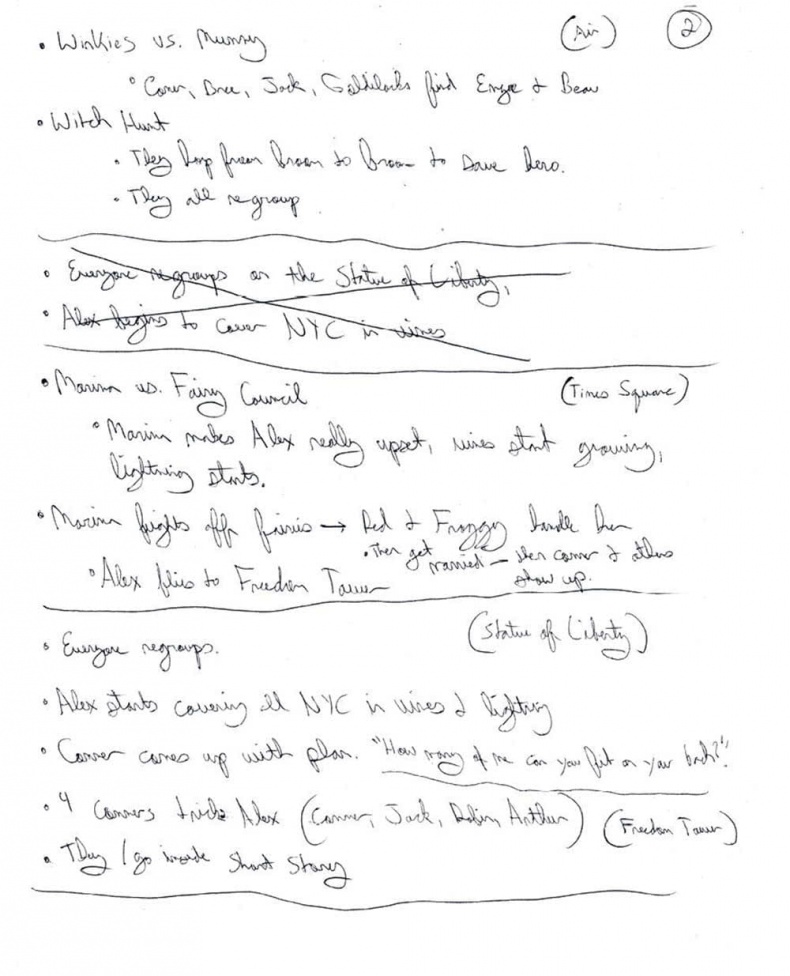 • Winkies vs. Mummy (Air) 2
• Conner, Bree, Jack, Goldilocks find Emgee & Beau
• Witch Hunt
• They hop from broom to broom to save hero.
• They all regroup
• Everyone regroups on the Statue of Liberty,
• Alex begins to cover NYC in vines
• Marina vs. Fairy Council (Times Square)
• Marina makes Alex really upset, vines start growing,
lightning starts.
• Marina fights off fairies → Red & Froggy handle her
• Then get married – then Conner & others
show up.
• Alex flies to Freedom Tower
• Everyone regroups. (Statue of Liberty)
• Alex starts covering all NYC in vines & lightning
• Conner comes up with plan. "How many of me can you fit on your back?"
• 4 Conners trick Alex (Conner, Jack, Robin, Arthur) (Freedom Tower)
• They go inside Short Story